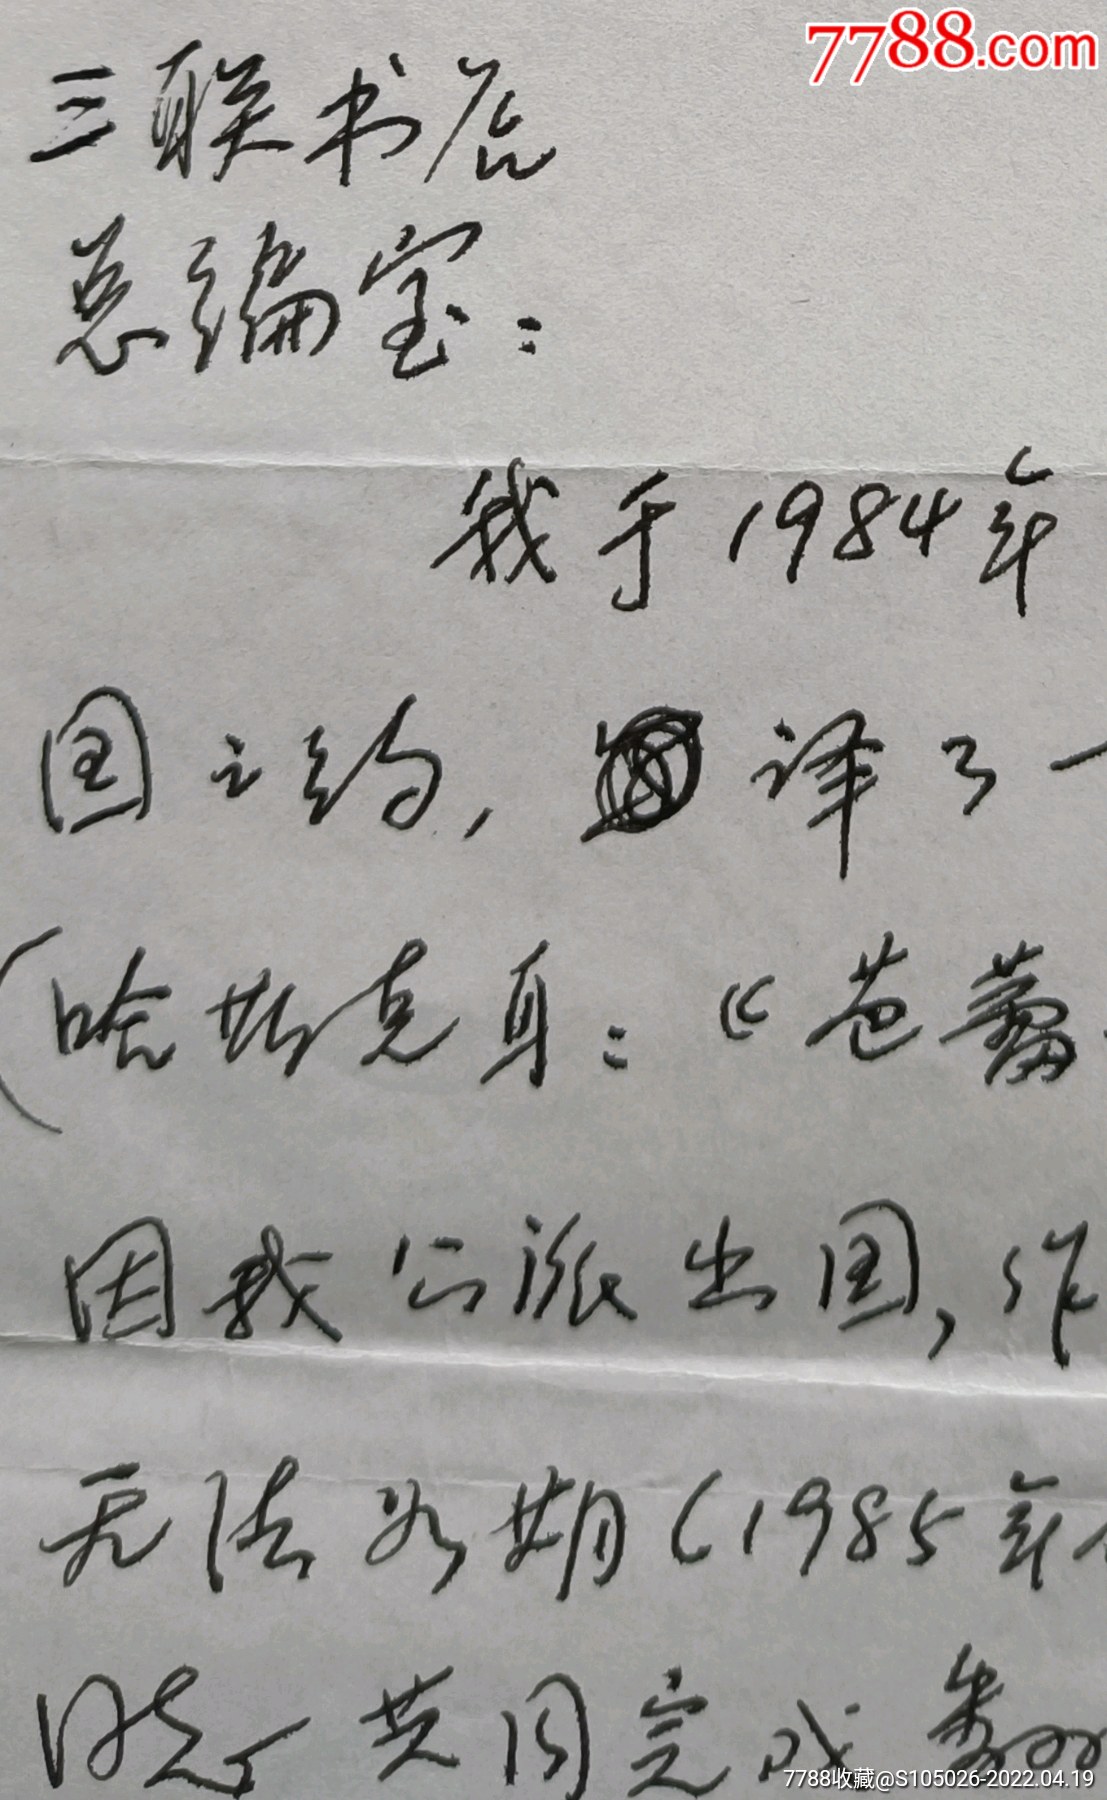 7788.com
三联书店
总编室：
我于1984年
国之约，译了一
（哈斯克身：《芭蕾
因我公派出国，作
无法如期（1985年
共同完成翻
7788收藏@S105026-2022.04.19